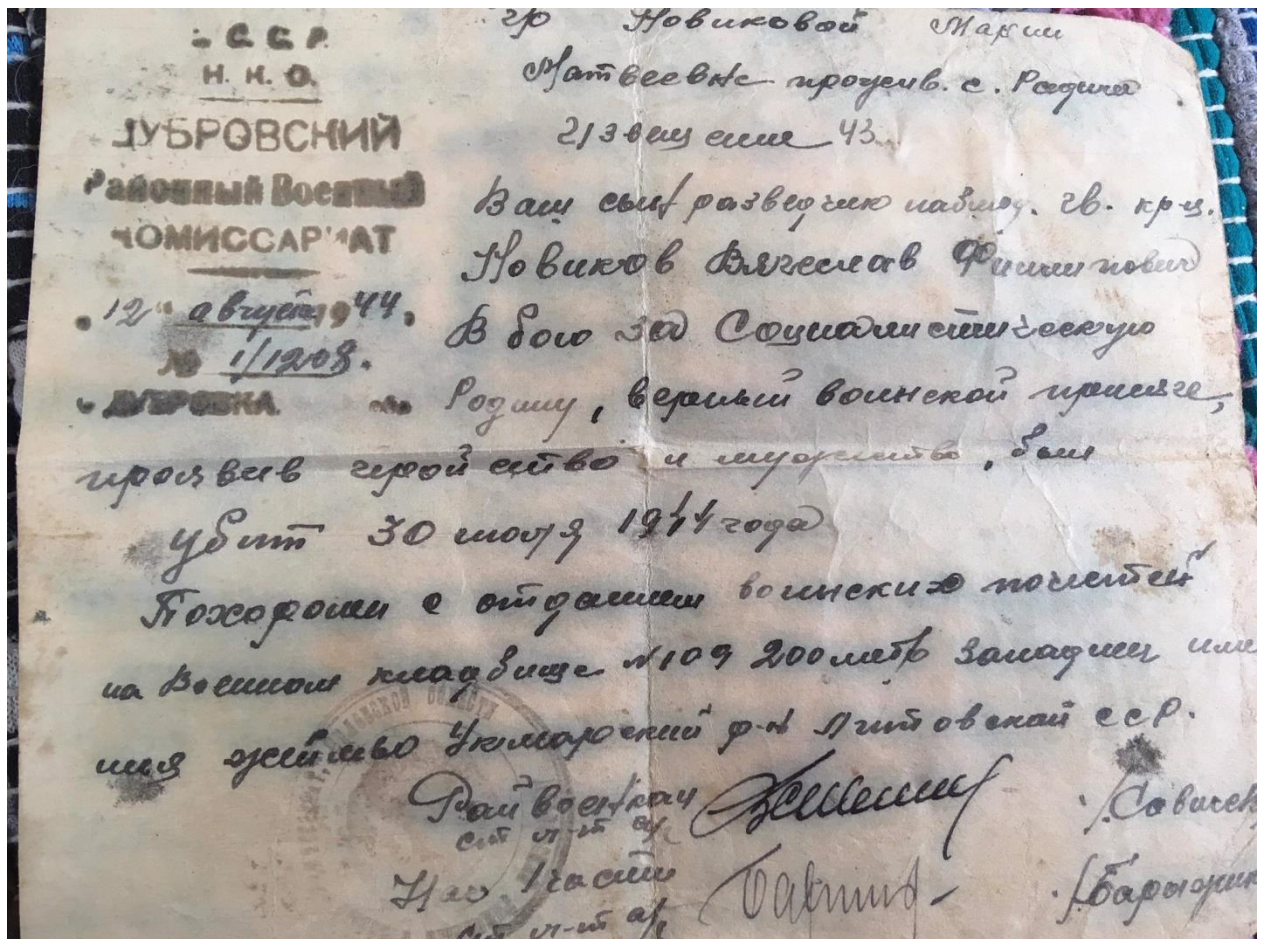 С.С.С.Р.
Н.К.О.
ДУБРОВСКИЙ
Районный Военный
КОМИССАРИАТ
"12" августа 1944.
№ 1/1208.
ДУБРОВКА
гр Новиковой Марии
Матвеевне прожив. с. Радича
Извещение 43
Ваш сын разведчик наблюд. гв. кр-ц.
Новиков Вячеслав Филиппович
В бою за Социалистическую
Родину, верный воинской присяге,
проявив геройство и мужество, был
убит 30 июля 1944 года
Похоронен с отданием воинских почестей
на Военном кладбище №109 200 метр западнее име
ния Укмергский р-н Литовской ССР.
Райвоенком
ст л-т а/с
Нач 1 части
ст л-т а/с
ОБЛАСТИ